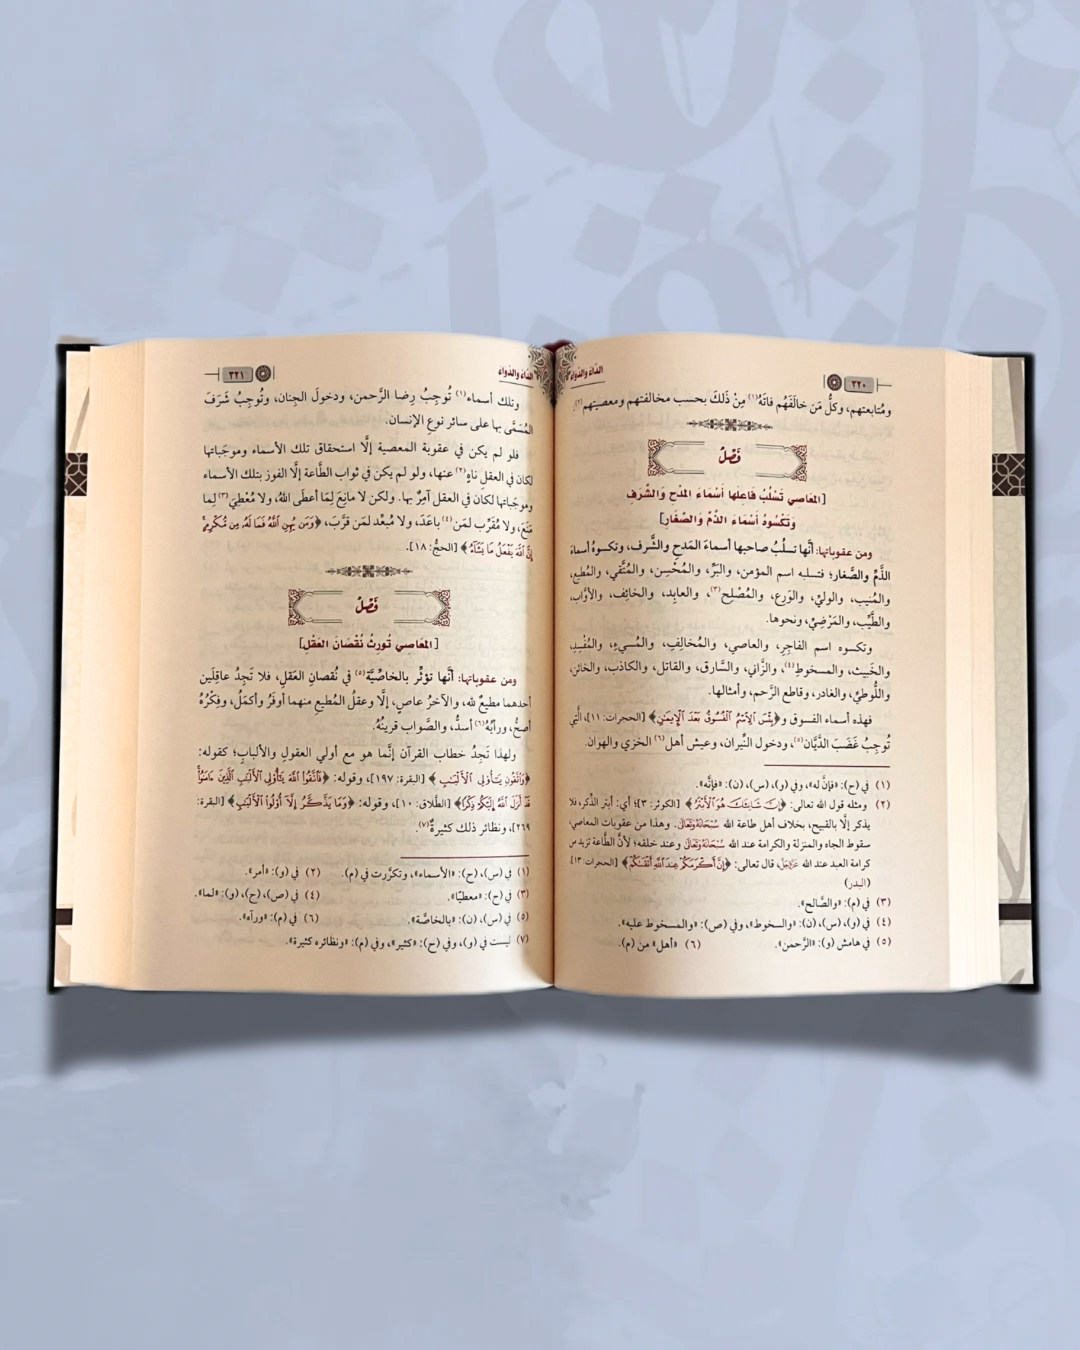 الدّاءُ والدّواء
٣٢٠
ومُتابعتهم، وكلُّ مَن خالَفَهُم فاتَهُ(١) مِنْ ذَلكَ بحسب مخالفتهم ومعصيتهم(٢).
فَصْلٌ
[المعَاصي تَسْلُبُ فَاعِلَها أَسْمَاءَ المدْحِ وَالشَّرَفِ
وَتَكْسُوهُ أَسْمَاءَ الذَّمِّ وَالصَّغَارِ]
ومن عقوباتها: أنَّها تسلُبُ صاحبها أسماءَ المَدحِ والشَّرف، وتكسوهُ أسماءَ
الذَّمِّ والصَّغار؛ فتسلبه اسم المؤمن، والبَرِّ، والمُحْسِن، والمُتَّقي، والمُطيع،
والمُنيب، والوليِّ، والوَرِع، والمُصْلِح(٣)، والعابِد، والخائِف، والأوَّاب،
والطَّيِّب، والمَرْضِيِّ، ونحوها.
وتكسوه اسم الفاجِرِ، والعاصي، والمُخالِفِ، والمُسيءِ، والمُفْسِدِ،
والخَبيث، والمسخوطِ(٤)، والزَّاني، والسَّارق، والقاتل، والكاذب، والخائن،
واللُّوطيِّ، والغادر، وقاطع الرَّحم، وأمثالها.
فهذه أسماء الفسوق و﴿بِئْسَ ٱلِٱسْمُ ٱلْفُسُوقُ بَعْدَ ٱلْإِيمَٰنِ﴾ [الحجرات: ١١]، الَّتي
تُوجِبُ غَضَبَ الدَّيَّان(٥)، ودخول النِّيران، وعيش أهل(٦) الخزي والهوان.
(١) في (ح): «فإنَّ له»، وفي (و)، (س)، (ن): «فإنَّه».
(٢) ومثله قول الله تعالى: ﴿إِنَّ شَانِئَكَ هُوَ ٱلْأَبْتَرُ﴾ [الكوثر: ٣]؛ أي: أبتر الذِّكر، فلا
يذكر إلَّا بالقبيح، بخلاف أهل طاعة الله سُبْحَانَهُ وَتَعَالَى. وهذا من عقوبات المعاصي،
سقوط الجاه والمنزلة والكرامة عند الله سُبْحَانَهُ وَتَعَالَى وعند خلقه؛ لأنَّ الطَّاعة تزيد من
كرامة العبد عند الله عَزَّوَجَلَّ، قال تعالى: ﴿إِنَّ أَكْرَمَكُمْ عِندَ ٱللَّهِ أَتْقَىٰكُمْ﴾ [الحجرات: ١٣].
(البدر)
(٣) في (م): «والصَّالح».
(٤) في (و)، (س)، (ن): «والسخوط»، وفي (ص): «والمسخوط عليه».
(٥) في هامش (و): «الرَّحمن». (٦) «أهل» من (م).
الدّاءُ والدّواء
٣٢١
وتلك أسماء(١) تُوجِبُ رِضا الرَّحمن، ودخولَ الجِنان، وتُوجِبُ شَرَفَ
المُسَمَّى بها على سائر نوعِ الإنسان.
فلو لم يكن في عقوبة المعصية إلَّا استحقاق تلك الأسماء وموجَباتها
لكان في العقلِ ناهٍ(٢) عنها، ولو لم يكن في ثواب الطَّاعة إلَّا الفوز بتلك الأسماء
وموجَباتها لكان في العقل آمِرٌ بها. ولكن لا مانِعَ لِمَا أعطَى اللهُ، ولا مُعْطِيَ(٣) لِمَا
مَنَعَ، ولا مُقَرِّب لمَن(٤) باعَدَ، ولا مُبعِّد لمَن قَرَّبَ، ﴿وَمَن يُهِنِ ٱللَّهُ فَمَا لَهُۥ مِن مُّكْرِمٍ ۚ
إِنَّ ٱللَّهَ يَفْعَلُ مَا يَشَآءُ﴾ [الحجُّ: ١٨].
فَصْلٌ
[المعَاصي تُورِثُ نُقْصَانَ العَقْلِ]
ومن عقوباتها: أنَّها تؤثِّر بالخاصِّيَّة(٥) في نُقصانِ العَقلِ، فلا تَجِدُ عاقِلَين
أحدهما مطيعٌ لله، والآخرُ عاصٍ، إلَّا وعقلُ المُطيعِ منهما أوفَرُ وأكمَلُ، وفِكْرُهُ
أصحُّ، ورأيُهُ(٦) أسدُّ، والصَّواب قرينُهُ.
ولهذا تَجِدُ خطاب القرآن إنَّما هو مع أولي العقولِ والألبابِ؛ كقوله:
﴿وَٱتَّقُونِ يَٰٓأُو۟لِي ٱلْأَلْبَٰبِ﴾ [البقرة: ١٩٧]، وقوله: ﴿فَٱتَّقُوا۟ ٱللَّهَ يَٰٓأُو۟لِي ٱلْأَلْبَٰبِ ٱلَّذِينَ ءَامَنُوا۟
قَدْ أَنزَلَ ٱللَّهُ إِلَيْكُمْ ذِكْرًا﴾ [الطَّلاق: ١٠]، وقوله: ﴿وَمَا يَذَّكَّرُ إِلَّآ أُو۟لُوا۟ ٱلْأَلْبَٰبِ﴾ [البقرة:
٢٦٩]، ونظائر ذلك كثيرةٌ(٧).
(١) في (س)، (ح): «الأسماء»، وتكرَّرت في (م). (٢) في (و): «أمر».
(٣) في (ح): «معطيًا». (٤) في (ص)، (ح)، (و): «لما».
(٥) في (س)، (ن): «بالخاصَّة». (٦) في (م): «ورآه».
(٧) ليست في (و)، وفي (ح): «كثير»، وفي (م): «ونظائره كثيرة».